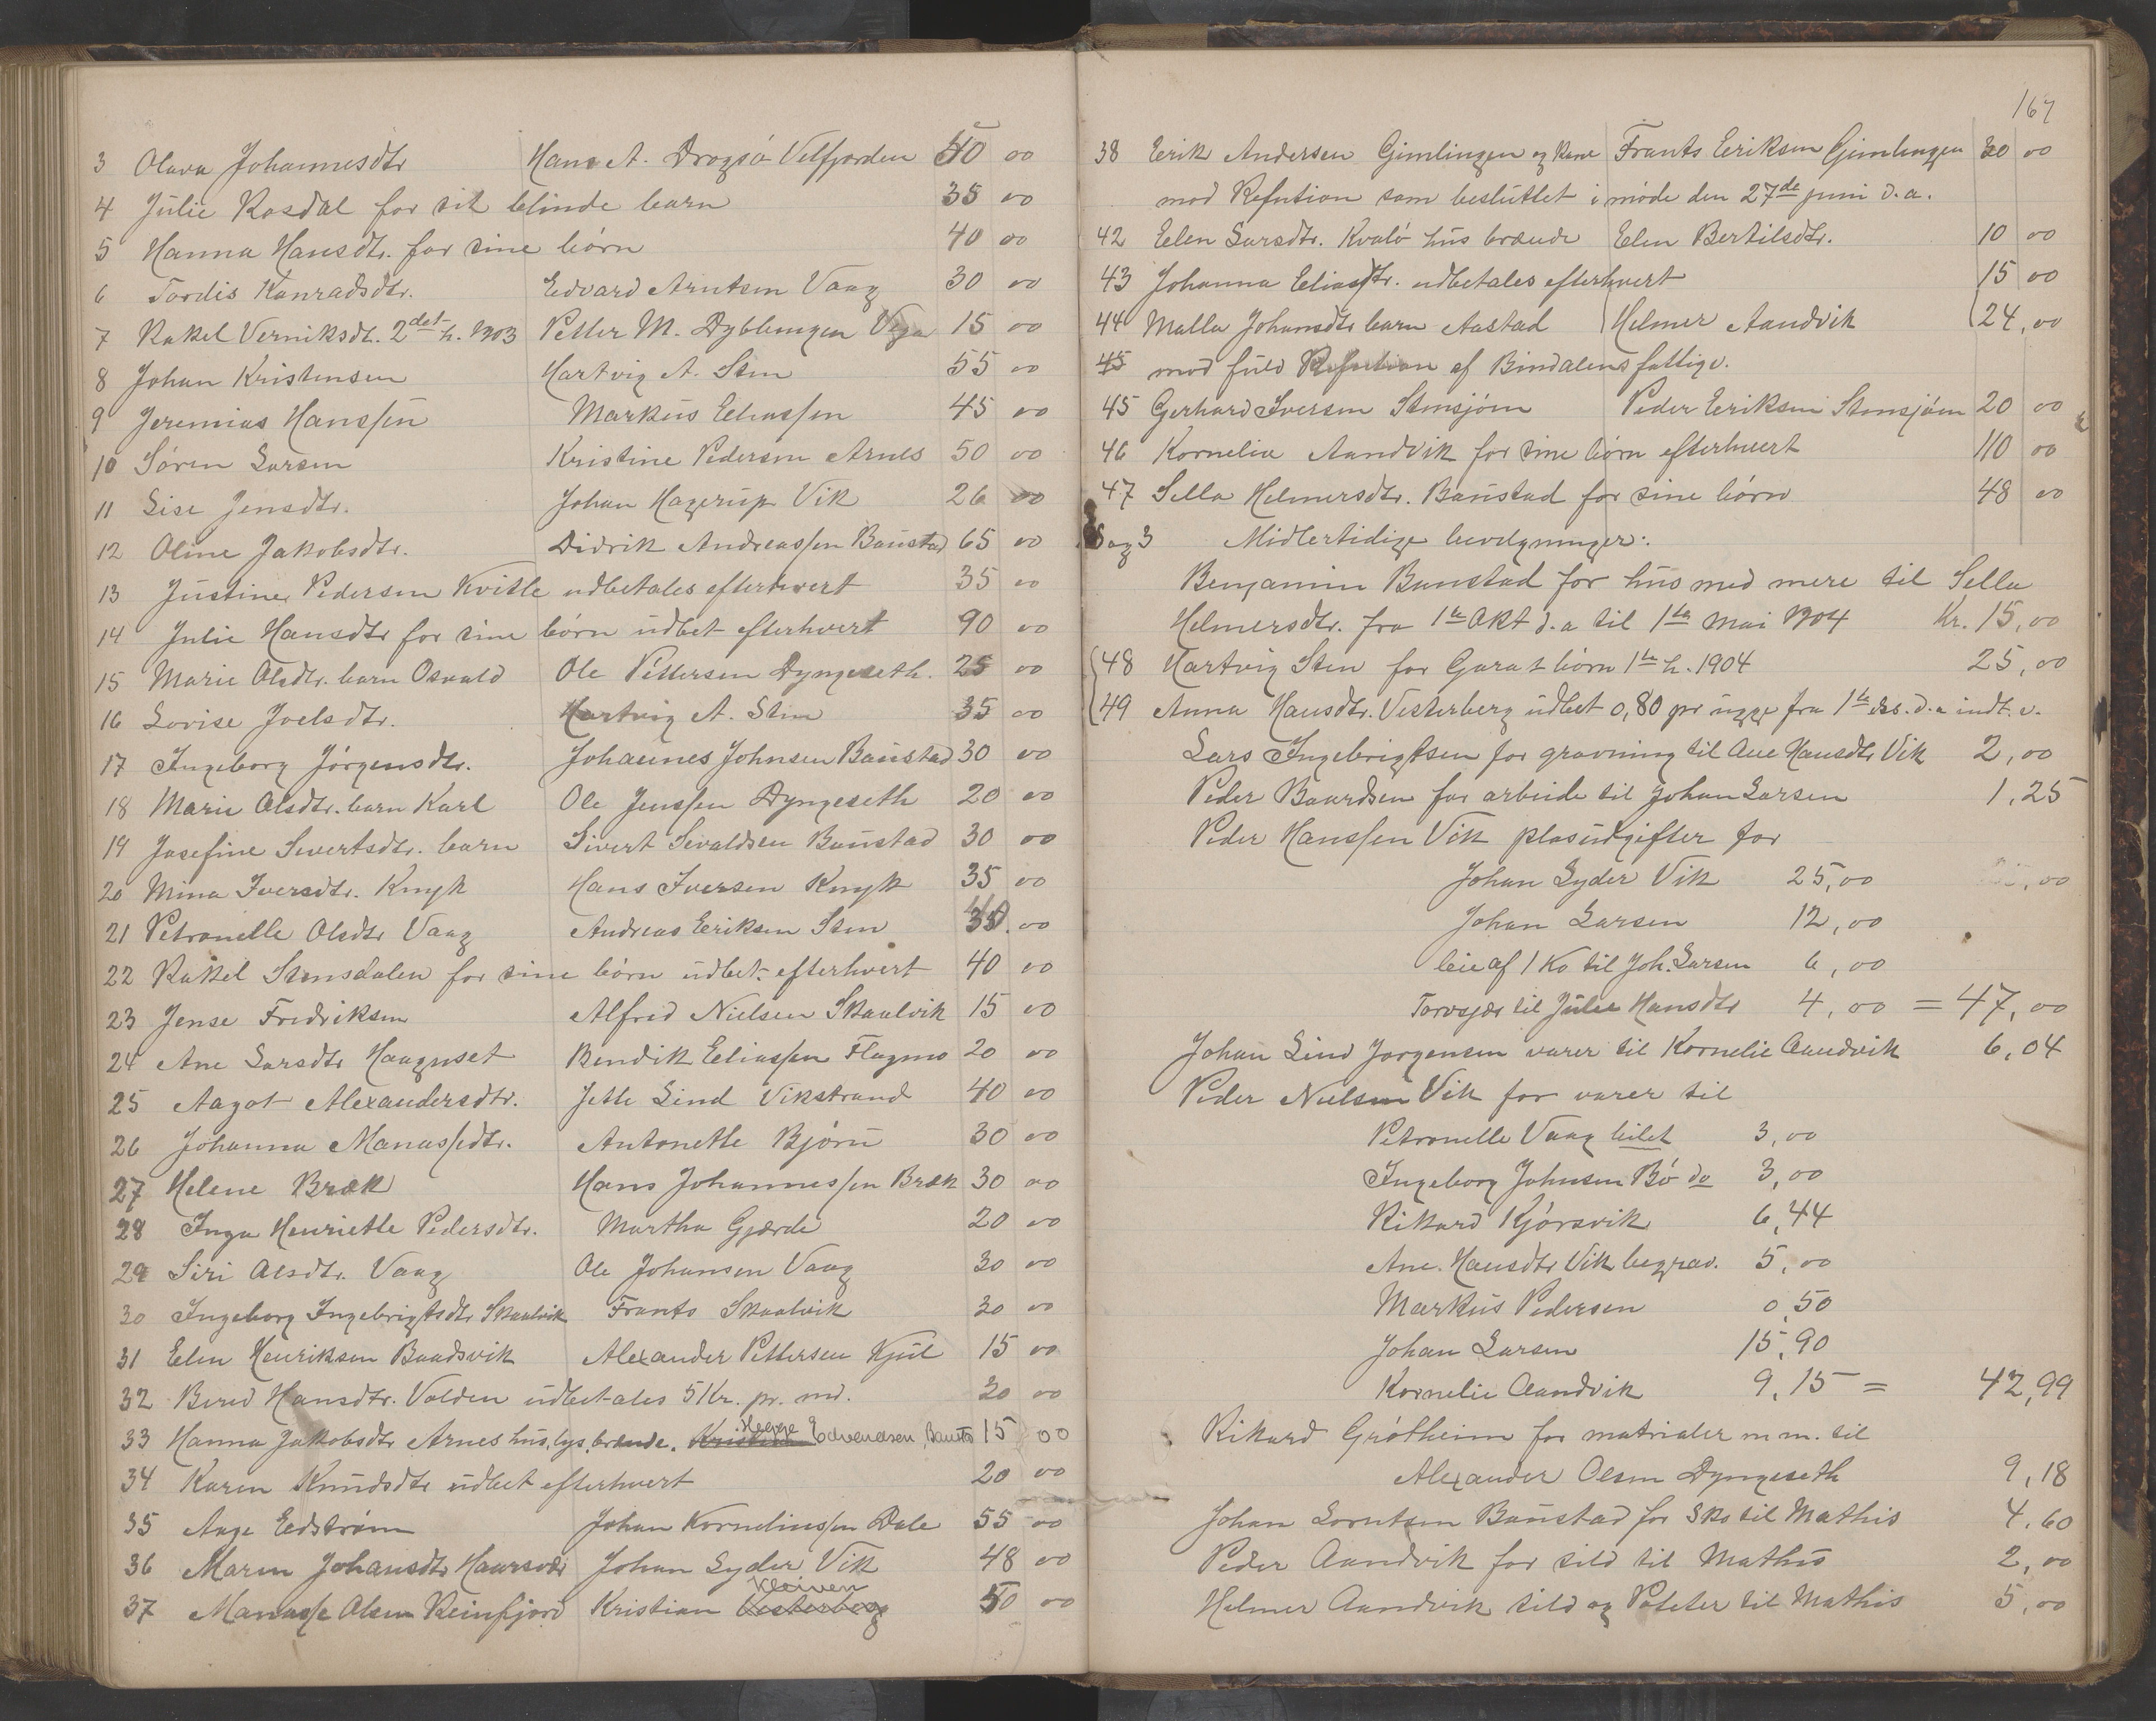 3 Olava Johannesdtr Hans A. Dragsø Velfjorden 50 00
4 Julie Rosdal for sit blinde barn 35 00
5 Hanna Hansdtr. for sine børn 40 00
6 Tordis Konradsdtr. Edvard Arntsen Vaag 30 00
7 Rakel Verniksdt. 2det h. 1903 Petter M. Dyblingen Vega 15 00
8 Johan Kristensen Hartvig A. Sten 55 00
9 Jeremias Hanssen Markus Eliassen 45 00
10 Søren Larsen Kristine Pedersen Arnes 50 00
11 Lise Jensdtr. Johan Hagerup Vik 26 00
12 Oline Jakobsdtr. Didrik Andreassen Baustad 65 00
13 Justine Pedersen Kvitle udbetales efterhvert 35 00
14 Julie Hansdtr for sine børn udbet efterhvert 90 00
15 Marie Olsdtr. barn Osvald Ole Pettersen Dyngeseth. 25 00
16 Lovise Joelsdtr. Hartvig A. Sten 35 00
17 Ingeborg Jørgensdtr. Johannes Johnsen Baustad 30 00
18 Marie Olsdtr. barn Karl Ole Jenssen Dyngeseth 20 00
19 Josefine Sivertsdtr. barn Sivert Sivaldsen Baustad 30 00
20 Mina Iversdtr. Knyk Hans Iversen Knyk 35 00
21 Petronelle Olsdtr Vaag Andreas Eriksen Sten 00
22 Rakel Stensdalen for sine børn udbet. efterhvert 40 00
23 Jense Fredriksen Alfred Nielsen Skaalvik 15 00
24 Ane Larsdtr Haagnset Bendik Eliassen Flagmo 20 00
25 Aagot Alexandersdtr. Jette Lind Vikstrand 40 00
26 Johanna Manassedtr. Antonette Bjørn 30 00
27 Helene Bræk Hans Johannessen Bræk 30 00
28 Inga Henriette Pedersdtr. Martha Gjærde 20 00
29 Siri Olsdtr. Vaag Ole Johansen Vaag 30 00
30 Ingeborg Ingebrigtsdtr Skaalvik Frants Skaalvik 30 00
31 Elen Henriksen Baadsvik Alexander Pettersen Kjul 15 00
32 Bered Hansdtr. Valden udbetales 5 Kr. pr. md. 30 00
33 Hanna Jakobsdtr Arnes hus, lys, brænde. Hegge Edvardsen, Baustd 15 00
34 Karen Knudsdtr udbet efterhvert 20 00
35 Aage Edstrøm Johan Korneliussen Dale 55 00
36 Maren Johansdtr Haarsvær Johan Lyder Vik 48 00
37 Manasse Olsen Reinfjord Kristian Vesterberg Kleiven 50 00
167
38 Erik Andersen Gimlingen og kone Frants Eriksen Gimlingen 30 00
mod Refution som besluttet i møde den 27de juni d.a.
42 Elen Larsdtr. Kvalø hus brænde Elen Bertilsdtr. 10 00
43 Johanna Eliasdtr. udbetales efterhvert 15 00
44 Malla Johansdtr barn Aastad Helmer Aandvik 24,00
45 mod fuld Refution af Bindalens fattigv.
45 Gerhard Iversen Stensjøen Peder Eriksen Stensjøen 20 00
46 Kornelie Aandvik for sine børn efterhvert 110 00
47 Sella Helmersdtr. Baustad for sine børn 48 00
Sag 3 Midlertidige bevilgninger:
Benjamin Baustad for hus med mere til Sella
Helmersdtr. fra 1te Okt d.a til 1te Mai 1904 Kr. 15,00
48 Hartvig Sten for Gurat børn 1te h. 1904 25,00
49 Anna Hansdtr. Vesterberg udbet 0,80 pr uge fra 1te des. d.a indt. v.
Lars Ingebrigtsen for gravning til Ane Hansdtr Vik 2,00
Peder Baardsen for arbeide til Johan Larsen 1,25
Peder Hanssen Vik plasudgifter for
Johan Lyder Vik 25,00
Johan Larsen 12,00
leie af 1 Ko til Joh. Larsen 6,00
Torvsjær til Julie Hansdtr 4,00 = 47,00
Johan Lind Jørgensen varer til Kornelie Aandvik 6,04
Peder Nielsen Vik for varer til
Petronelle Vaag bilet 3,00
Ingeborg Johnsen Bø do 3,00
Rikard Kjørsvik 6,44
Ane Hansdtr Vik begrav. 5,00
Markus Pedersen 0,50
Johan Larsen 15,90
Kornelie Aandvik 9,15 = 42,99
Rikard Grøtheim for matrialer m m. til
Alexander Olsen Dyngeseth 9,18
Johan Lorntsen Baustad for Sko til Mathis 4,60
Peder Aandvik for sild til Mathis 2,00
Helmer Aandvik sild og Poteter til Mathis 5,00